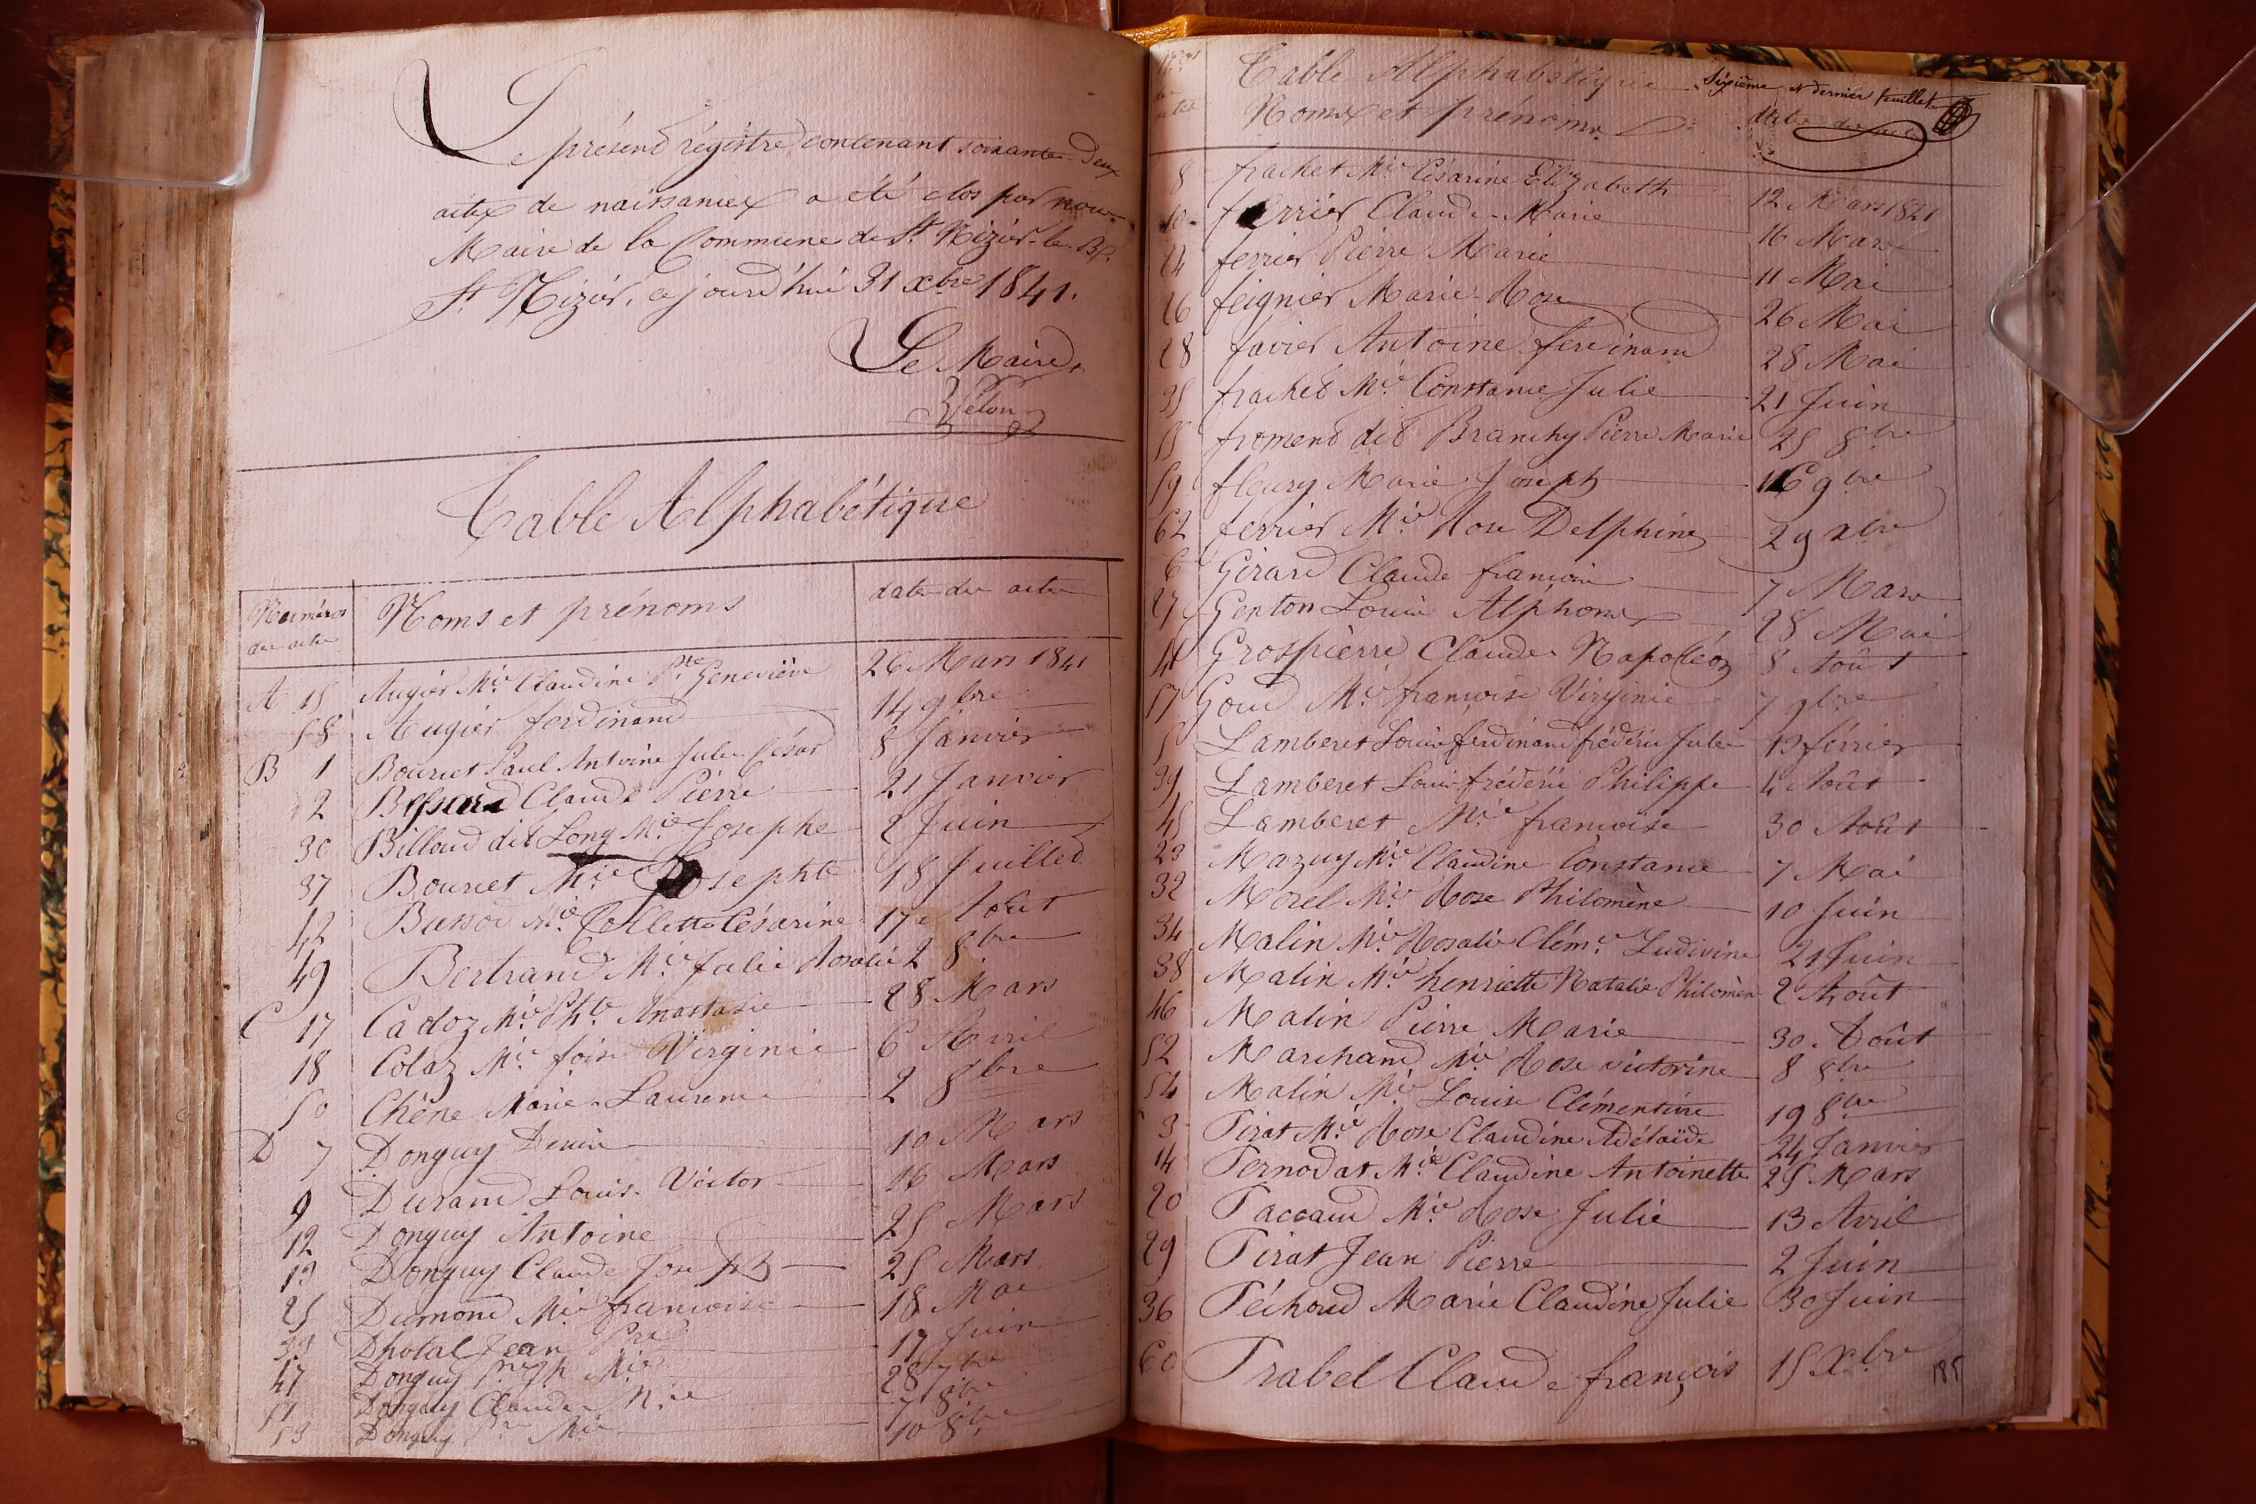 Le présent régistre contenant soixante-deux
actes de naissances a été clos par nous
Maire de la Commune de St Nizier-le-Bt.
St Nizier, ce jourd'hui 31 xbre 1841.
Le Maire,
Table Alphabétique
Numéros des actes Noms et prénoms date des actes
A 15 Augier Mie Claudine Pte Geneviève 26 Mars 1841
58 Augier ferdinand 14 9bre
B 1 Bouriet Paul Antoine Jules César 8 Janvier
2 Claude Pierre 21 Janvier
30 Billoud dit Long Mie Josephe 2 Juin
37 Bouriet Mie Josephte 18 Juillet
42 Mie Collette Césarine 17 Août
49 Bertrand Mie Julie Rosalie 2 8bre
C 17 Cadoz Mie Phte Anastasie 28 Mars
18 Colaz Mie foise Virginie 6 Avril
50 Chêne Marie-Laurence 2 8bre
D 7 Donguy Denis 10 Mars
9 Durand Louis-Victor 16 Mars
12 Donguy Antoine 25 Mars
13 Donguy Claude Joseph 25 Mars
25 Dumond Mie françoise 18 Mai
33 Dhotal Jean Pre 17 Juin
47 Donguy Mie 28 7bre
51 Donguy Claude Mie 7 8bre
53 Donguy Pre Mie 10 8bre
Table Alphabétique
Sixième et dernier feuillet
Noms et prénoms dates des actes
8 frachet Mie Césarine Elizabeth 12 Mars 1841
10 ferrier Claude-Marie 16 Mars
24 ferrier Pierre Marie 11 Mai
26 feignier Marie-Rose 26 Mai
28 favier Antoine ferdinand 28 Mai
35 frachet Mie Constance Julie 21 Juin
55 froment dit Branchy Pierre Marie 25 8bre
59 fleury Marie Joseph 9bre
62 ferrier Mie Rose Delphine 29 xbre
6 Girard Claude françois 7 Mars
27 Genton Louis Alphonse 28 Mai
41 Grospierre Claude-Napoléon 8 Août
57 Goud Mie françoise Virginie 7 9bre
5 Lamberet Louis ferdinand frédéric Jules 13 février
39 Lamberet Louis frédéric Philippe 4 Août
45 Lamberet Mie françoise 30 Août
23 Mazuy Mie Claudine Constance 7 Mai
32 Morel Mie Rose Philomène 10 Juin
34 Malin Mie Rosalie Clémce Ludivine 21 Juin
38 Malin Mie henriette Natalie Philomène 2 Août
46 Malin Pierre Marie 30 Août
52 Marchand Mie Rose victorine 8 8bre
54 Malin Mie Louise Clémentine 19 8bre
3 Tirat Mie Rose Claudine Adélaïde 24 Janvier
14 Ternodat Mie Claudine Antoinette 25 Mars
20 Taccaud Mie Rose Julie 13 Avril
29 Tirat Jean Pierre 2 Juin
36 Téchoud Marie Claudine Julie 30 Juin
60 Trabel Claude françois 15 Xbre
185